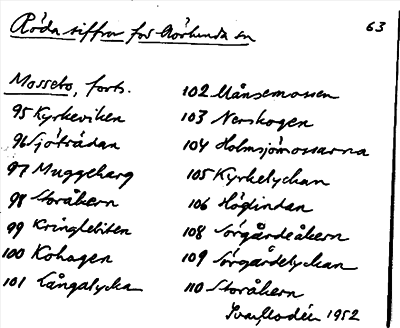 Röda siffror för Hörlunda sn
63
Mosseto, forts.
95 Kyrkeviken
96 Sjöträdan
97 Muggeberg
98 Storåkern
99 Kringlebiten
100 Kohagen
101 Långalycka
102 Månsemossen
103 Nerskogen
104 Holmsjömossarna
105 Kyrkelyckan
106 Höglindan
108 Sörgårdeåkern
109 Sörgårdelyckan
110 Storåkern
1952